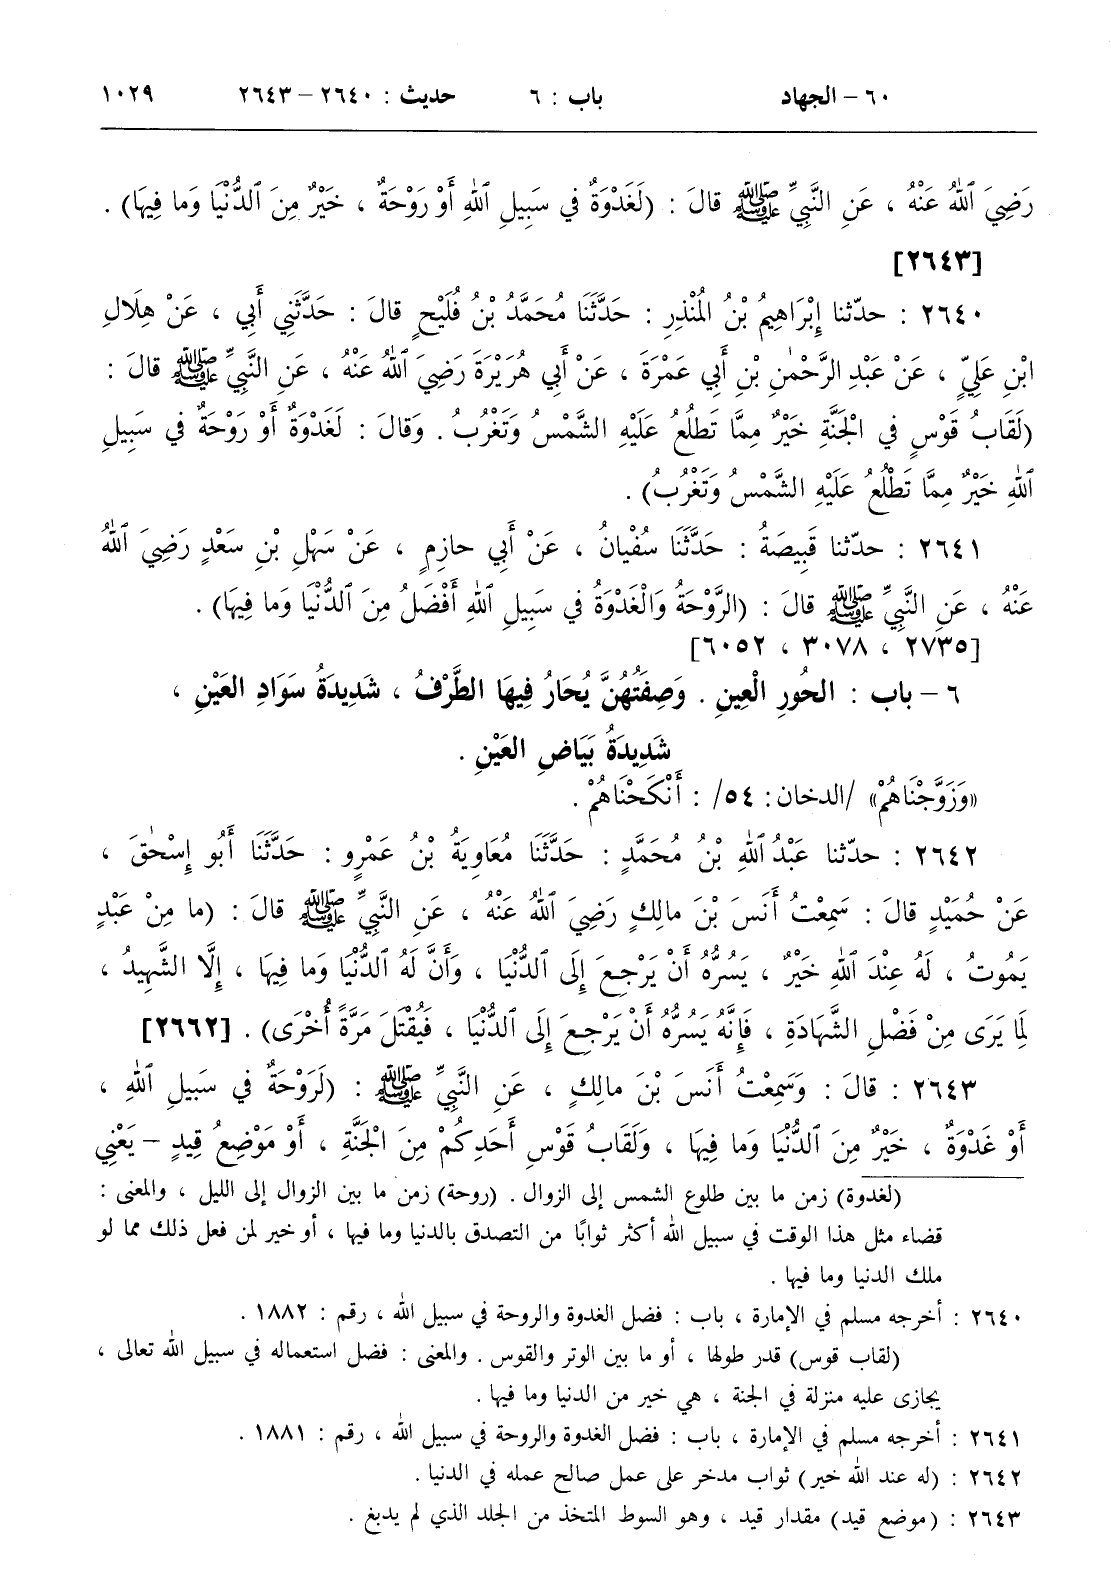 ٦٠ – الجهاد باب : ٦ حديث : ٢٦٤٠ – ٢٦٤٣ ١٠٢٩
رَضِيَ ٱللهُ عَنْهُ ، عَنِ النَّبِيِّ ﷺ قالَ : (لَغَدْوَةٌ في سَبِيلِ ٱللهِ أَوْ رَوْحَةٌ ، خَيْرٌ مِنَ ٱلدُّنْيَا وَما فِيهَا) .
[٢٦٤٣]
٢٦٤٠ : حدّثنا إِبْرَاهِيمُ بْنُ المُنْذِرِ : حَدَّثَنَا مُحَمَّدُ بْنُ فُلَيْحٍ قالَ : حَدَّثَنِي أَبي ، عَنْ هِلَالِ
ابْنِ عَلِيٍّ ، عَنْ عَبْدِ الرَّحْمٰنِ بْنِ أَبي عَمْرَةَ ، عَنْ أَبي هُرَيْرَةَ رَضِيَ ٱللهُ عَنْهُ ، عَنِ النَّبِيِّ ﷺ قالَ :
(لَقَابُ قَوْسٍ في الجَنَّةِ خَيْرٌ مِمَّا تَطْلُعُ عَلَيْهِ الشَّمْسُ وَتَغْرُبُ . وَقالَ : لَغَدْوَةٌ أَوْ رَوْحَةٌ في سَبِيلِ
ٱللهِ خَيْرٌ مِمَّا تَطْلُعُ عَلَيْهِ الشَّمْسُ وَتَغْرُبُ) .
٢٦٤١ : حدّثنا قَبِيصَةُ : حَدَّثَنَا سُفْيانُ ، عَنْ أَبي حازِمٍ ، عَنْ سَهْلِ بْنِ سَعْدٍ رَضِيَ ٱللهُ
عَنْهُ ، عَنِ النَّبِيِّ ﷺ قالَ : (الرَّوْحَةُ وَالْغَدْوَةُ في سَبِيلِ ٱللهِ أَفْضَلُ مِنَ ٱلدُّنْيَا وَما فِيهَا) .
[٢٧٣٥ ، ٣٠٧٨ ، ٦٠٥٢]
٦ – باب : الحُورِ الْعِينِ . وَصِفَتُهُنَّ يُحَارُ فِيهَا الطَّرْفُ ، شَدِيدَةُ سَوَادِ العَيْنِ ،
شَدِيدَةُ بَيَاضِ العَيْنِ .
«وَزَوَّجْنَاهُمْ» /الدخان: ٥٤/ : أَنْكَحْنَاهُمْ .
٢٦٤٢ : حدّثنا عَبْدُ ٱللهِ بْنُ مُحَمَّدٍ : حَدَّثَنَا مُعَاوِيَةُ بْنُ عَمْرٍو : حَدَّثَنَا أَبُو إِسْحٰقَ ،
عَنْ حُمَيْدٍ قالَ : سَمِعْتُ أَنَسَ بْنَ مالِكٍ رَضِيَ ٱللهُ عَنْهُ ، عَنِ النَّبِيِّ ﷺ قالَ : (ما مِنْ عَبْدٍ
يَمُوتُ ، لَهُ عِنْدَ ٱللهِ خَيْرٌ ، يَسُرُّهُ أَنْ يَرْجِعَ إِلَى ٱلدُّنْيَا ، وَأَنَّ لَهُ ٱلدُّنْيَا وَما فِيهَا ، إِلَّا الشَّهِيدُ ،
لِمَا يَرَى مِنْ فَضْلِ الشَّهَادَةِ ، فَإِنَّهُ يَسُرُّهُ أَنْ يَرْجِعَ إِلَى ٱلدُّنْيَا ، فَيُقْتَلَ مَرَّةً أُخْرَى) . [٢٦٦٢]
٢٦٤٣ : قالَ : وَسَمِعْتُ أَنَسَ بْنَ مالِكٍ ، عَنِ النَّبِيِّ ﷺ : (لَرَوْحَةٌ في سَبِيلِ ٱللهِ ،
أَوْ غَدْوَةٌ ، خَيْرٌ مِنَ ٱلدُّنْيَا وَما فِيهَا ، وَلَقَابُ قَوْسِ أَحَدِكُمْ مِنَ الجَنَّةِ ، أَوْ مَوْضِعُ قِيدٍ – يَعْنِي
(لغدوة) زمن ما بين طلوع الشمس إلى الزوال . (روحة) زمن ما بين الزوال إلى الليل ، والمعنى :
قضاء مثل هذا الوقت في سبيل الله أكثر ثوابًا من التصدق بالدنيا وما فيها ، أو خير لمن فعل ذلك مما لو
ملك الدنيا وما فيها .
٢٦٤٠ : أخرجه مسلم في الإمارة ، باب : فضل الغدوة والروحة في سبيل الله ، رقم : ١٨٨٢ .
(لقاب قوس) قدر طولها ، أو ما بين الوتر والقوس . والمعنى : فضل استعماله في سبيل الله تعالى ،
يجازى عليه منزلة في الجنة ، هي خير من الدنيا وما فيها .
٢٦٤١ : أخرجه مسلم في الإمارة ، باب : فضل الغدوة والروحة في سبيل الله ، رقم : ١٨٨١ .
٢٦٤٢ : (له عند الله خير) ثواب مدخر على عمل صالح عمله في الدنيا .
٢٦٤٣ : (موضع قيد) مقدار قيد ، وهو السوط المتخذ من الجلد الذي لم يدبغ .